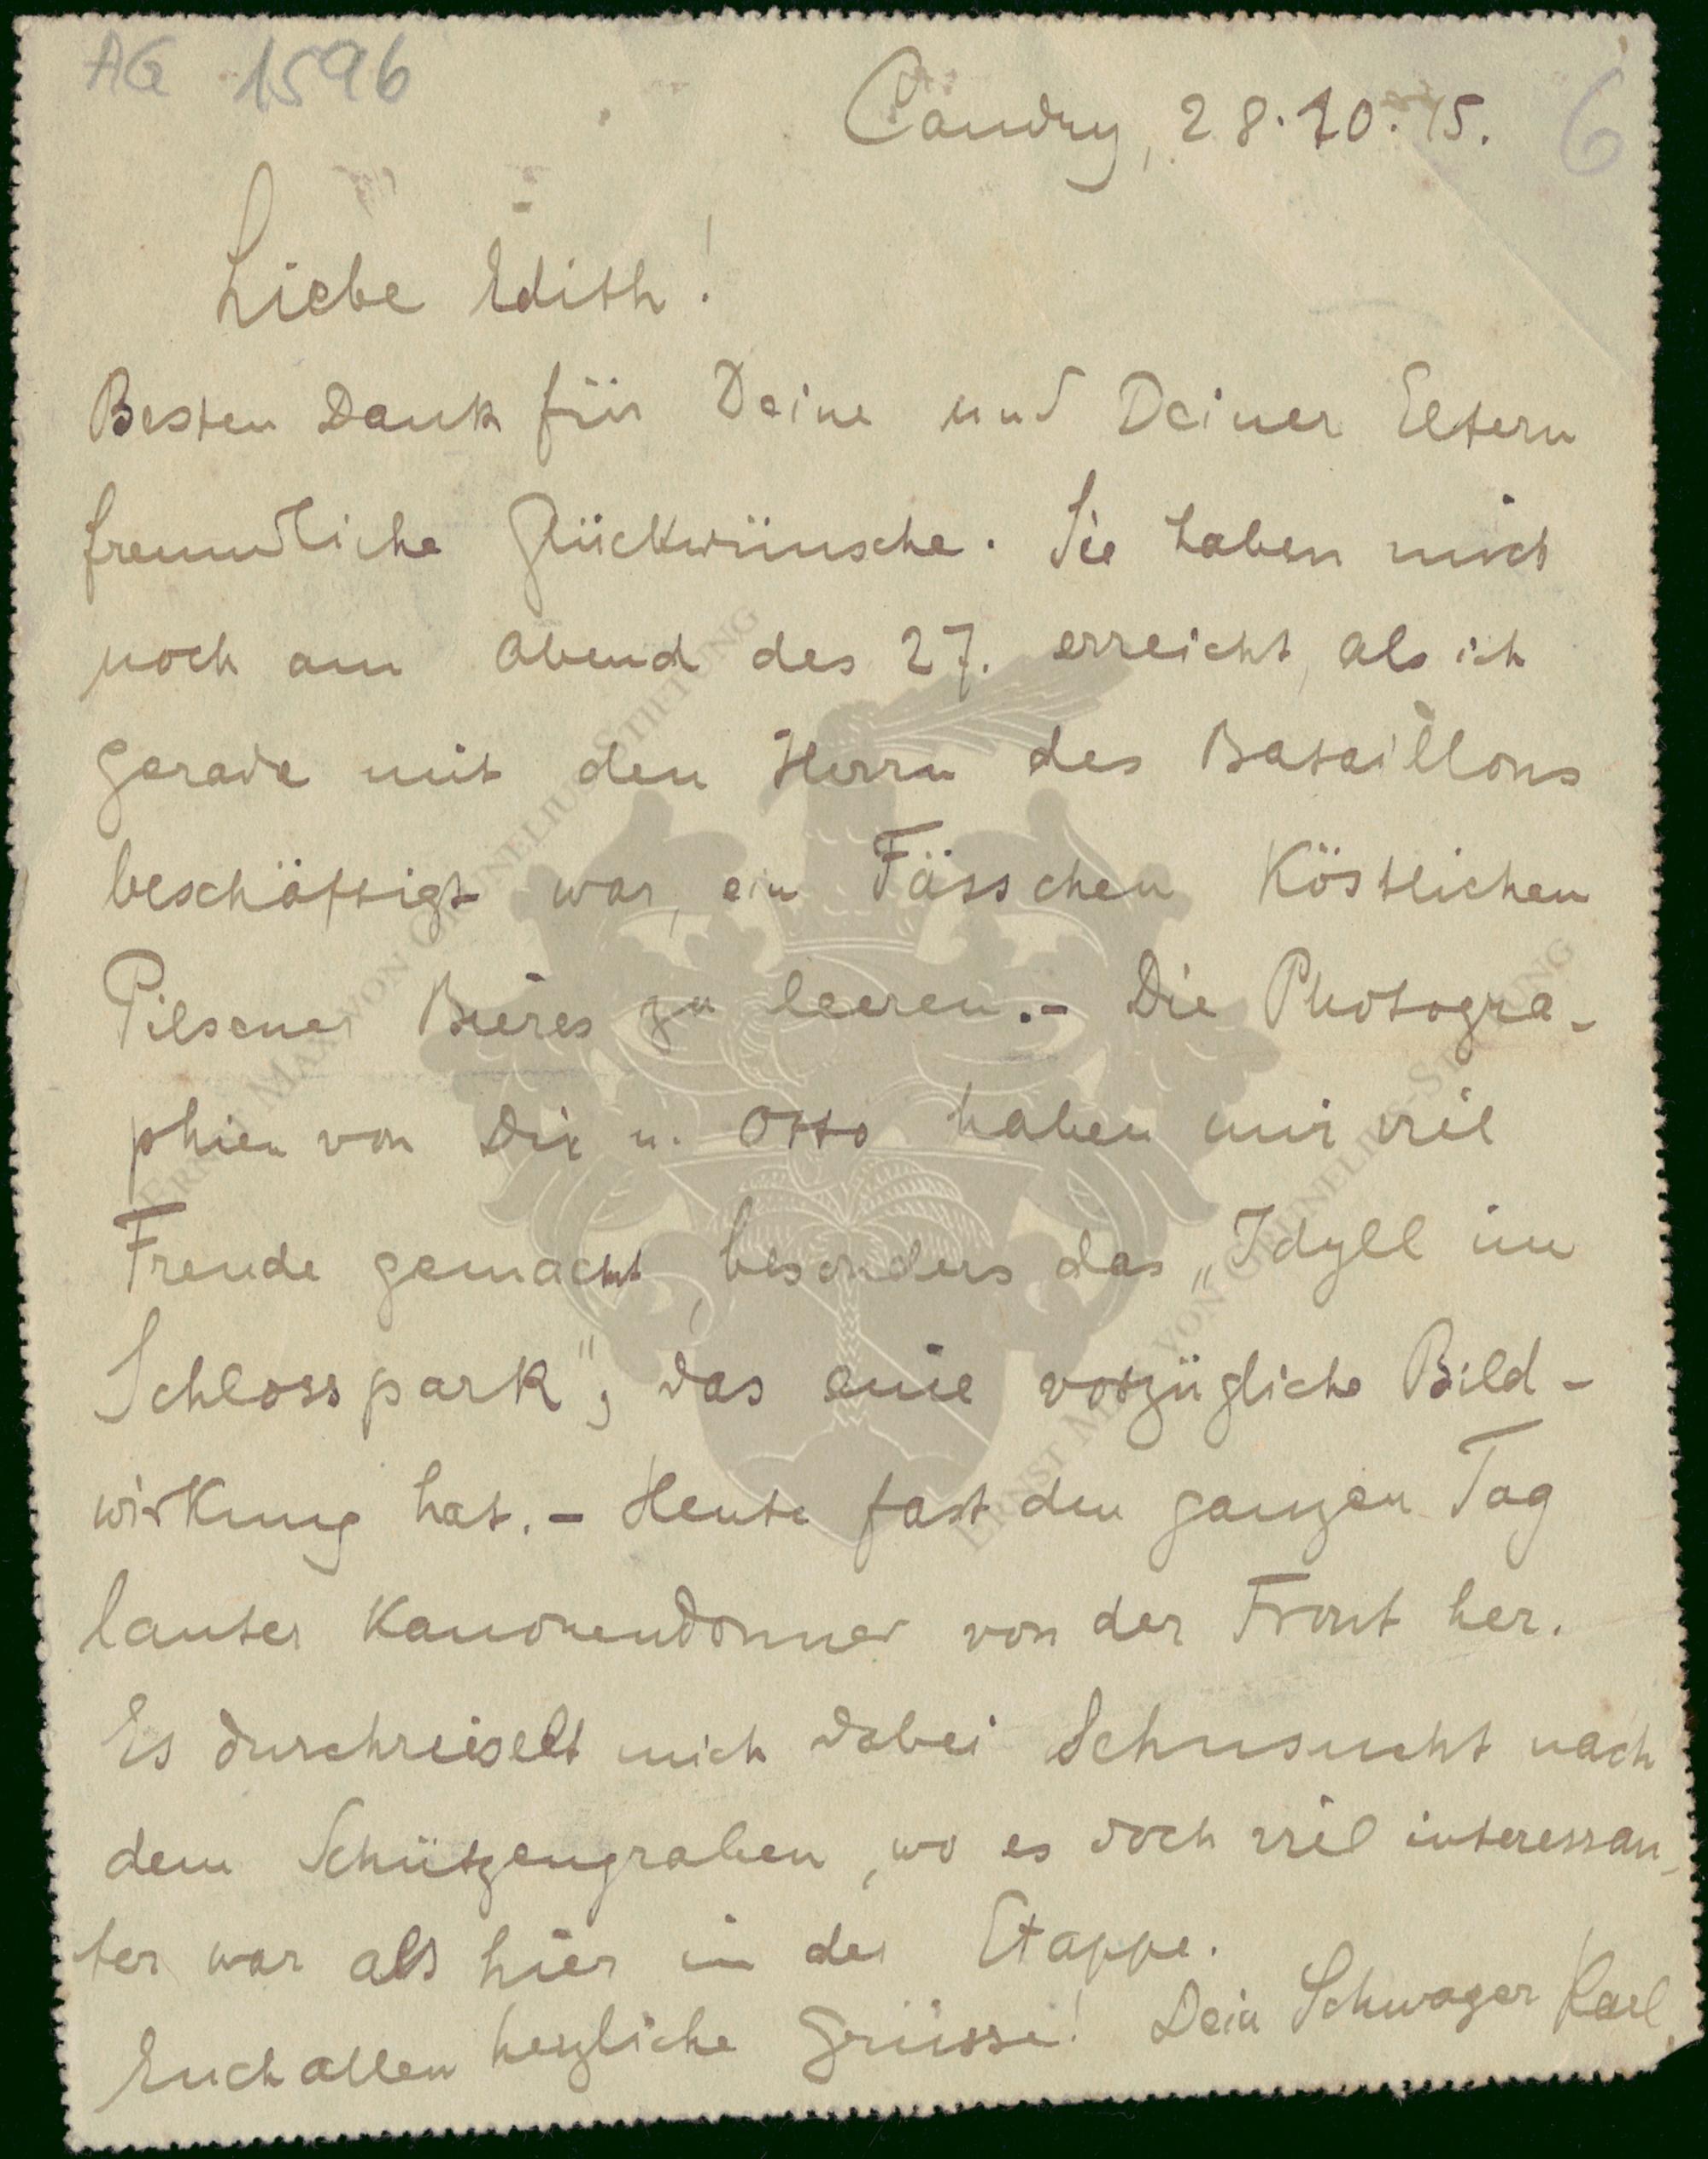 AG 1596
Caudry, 28.10.15. 6
Liebe Edith!
Besten Dank für Deine und Deiner Eltern
freundliche Glückwünsche. Sie haben mich
noch am Abend des 27. erreicht, als ich
gerade mit den Herrn des Bataillons
beschäftigt war, ein Fässchen köstlichen
Pilsener Bieres zu leeren.- Die Photogra-
phien von Dir u. Otto haben mir viel
Freude gemacht, besonders das „Idyll im
Schlosspark", das eine vorzügliche Bild-
wirkung hat. - Heute fast den ganzen Tag
lauter Kanonendonner von der Front her.
Es durchrieselt mich dabei Sehnsucht nach
dem Schützengraben, wo es doch viel interessan-
ter war als hier in der Etappe.
Euch allen herzliche Grüsse! Dein Schwager Karl.
ERNST MAX VON GRUNELIUS-STIFTUNG
ERNST MAX VON GRUNELIUS-STIFTUNG